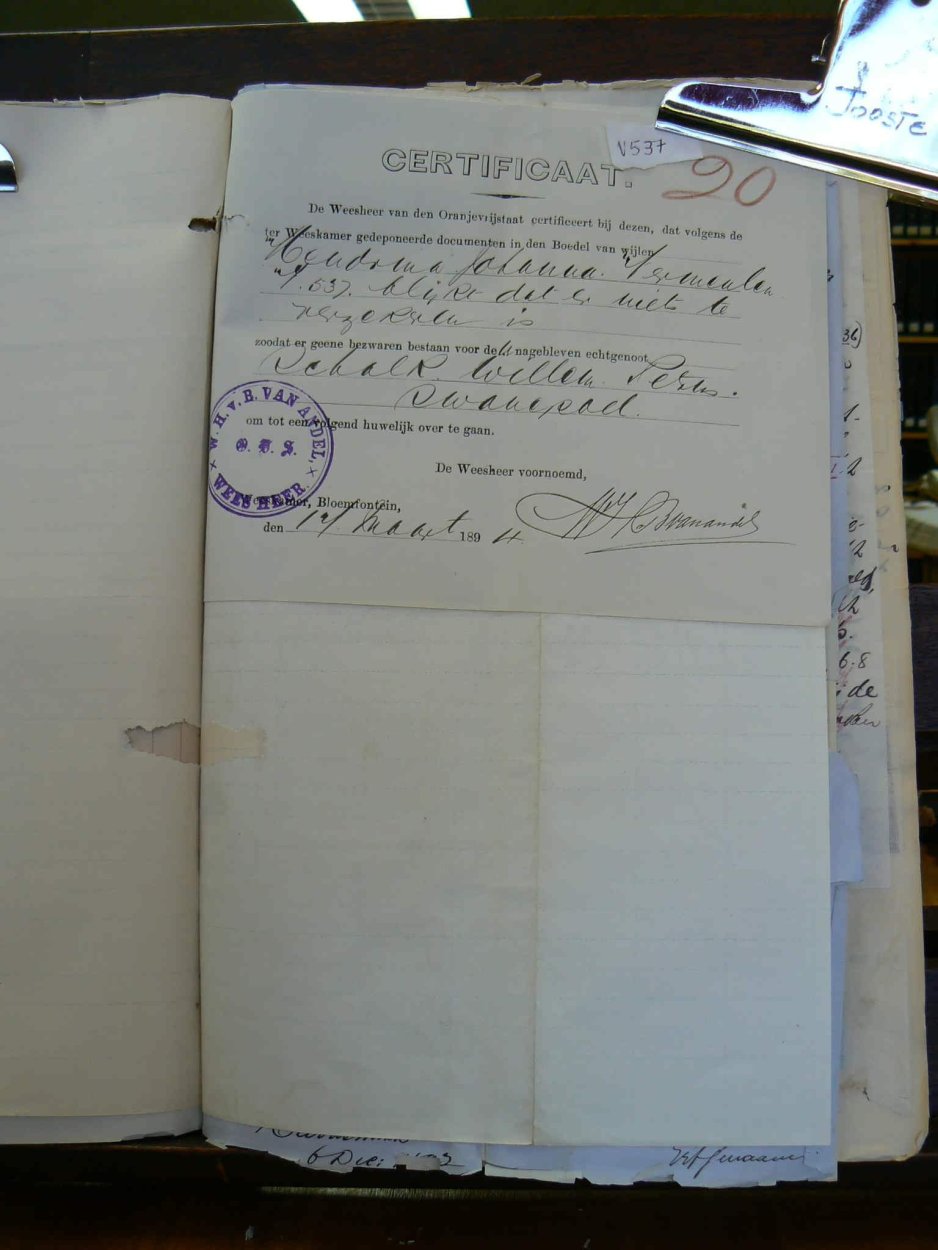 JOOSTE
V537
CERTIFICAAT.
90
De Weesheer van den Oranjevrijstaat certificeert bij dezen, dat volgens de
ter Weeskamer gedeponeerde documenten in den Boedel van wijlen
Hendrina Johanna Vermeulen
V. 537. blijkt dat er niets te
verzekeren is
zoodat er geene bezwaren bestaan voor de nagebleven echtgenoot
Schalk Willem Petrus
Swanepoel.
om tot een volgend huwelijk over te gaan.
W. H. v. B. VAN ANDEL,
O. V. S.
WEESHEER.
De Weesheer voornoemd,
Weeskamer, Bloemfontein,
den Maart 1894
WHBvanandel
36)
6.8
de
6 Dec: